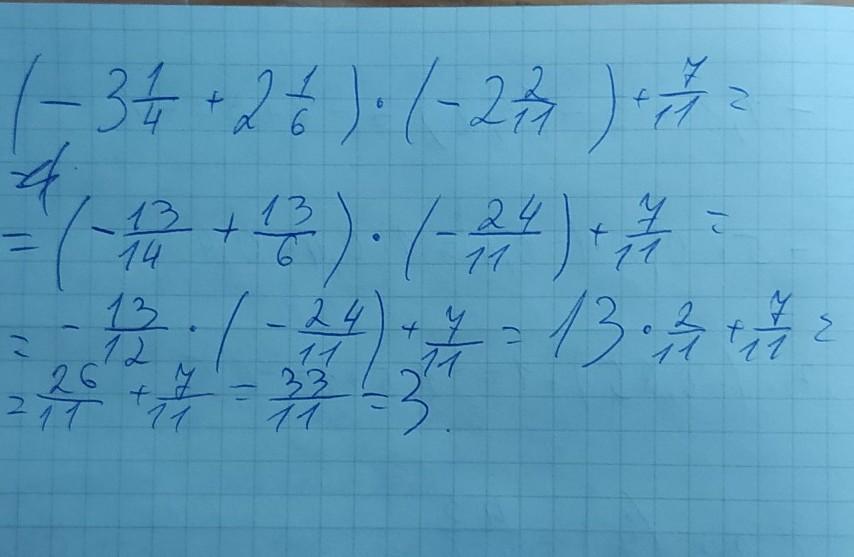 (-3 1/4 + 2 1/6) · (-2 2/11) + 7/11 =
= (-13/14 + 13/6) · (-24/11) + 7/11 =
= -13/12 · (-24/11) + 7/11 = 13 · 2/11 + 7/11 =
= 26/11 + 7/11 = 33/11 = 3.